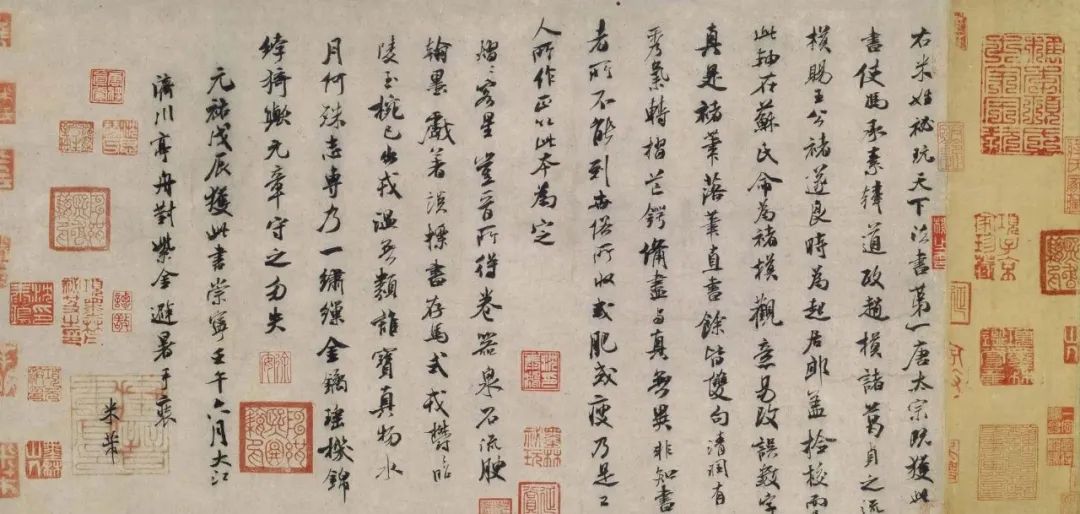 右米姓祕玩天下法書第一唐太宗既獲此
書使馮承素韓道政趙模諸葛貞之流
模賜王公褚遂良時為起居郎蓋檢校而
此軸在蘇氏命為褚模觀意易改誤數字
真是褚筆落筆直書餘皆雙句清潤有
秀氣轉摺芒鍔備盡與真無異非知書
者所不能到世俗所收或肥或瘦乃是工
人所作正以此本為定
熠〻客星豈晉所得卷器泉石流腴
翰墨戲著談標書存馬式欝昭
陵玉椀已出戎溫無類誰寶真物水
月何殊志專乃一繡繅金鐍瑤機錦
綷猗歟元章守之勿失
元祐戊辰獲此書崇寧壬午六月大江
濟川亭舟對紫金避暑手裝
米芾